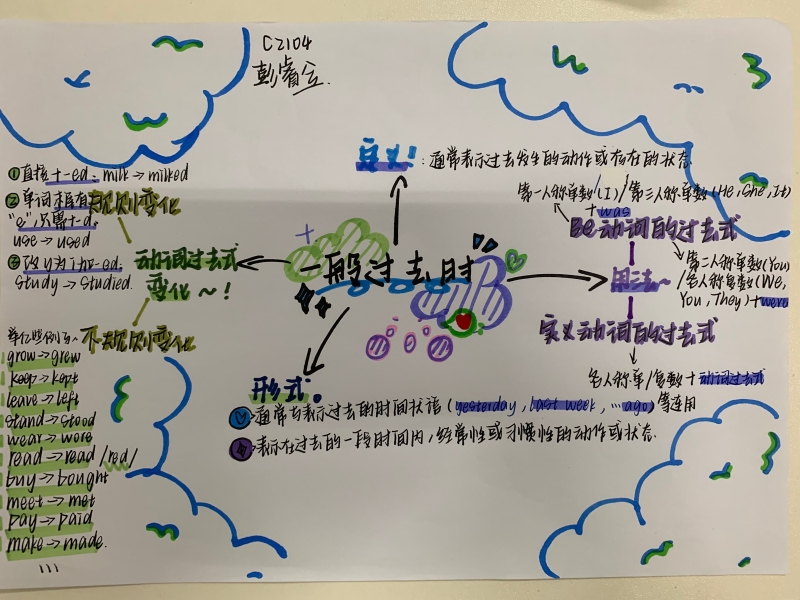 C2104
彭睿
定义!:通常表示过去发生的动作或存在的状态.
一般过去时
①直接+-ed: milk→milked
②单词末尾有
"e",只需+-d.
use→used
③改y为i加-ed.
study→studied.
规则变化
动词过去式
变化~!
不规则变化
grow→grew
keep→kept
leave→left
stand→stood
wear→wore
read→read /red/
buy→bought
meet→met
pay→paid
make→made.
形式。
通常与表示过去的时间状语(yesterday, last week, …ago)等连用
表示在过去的一段时间内,经常性或习惯性的动作或状态.
第一人称单数(I)/第三人称单数(He, She, It)
+was
Be动词的过去式
第二人称单数(You)
/各人称复数(We,
You, They)+were
用法~
实义动词的过去式
各人称单/复数+动词过去式